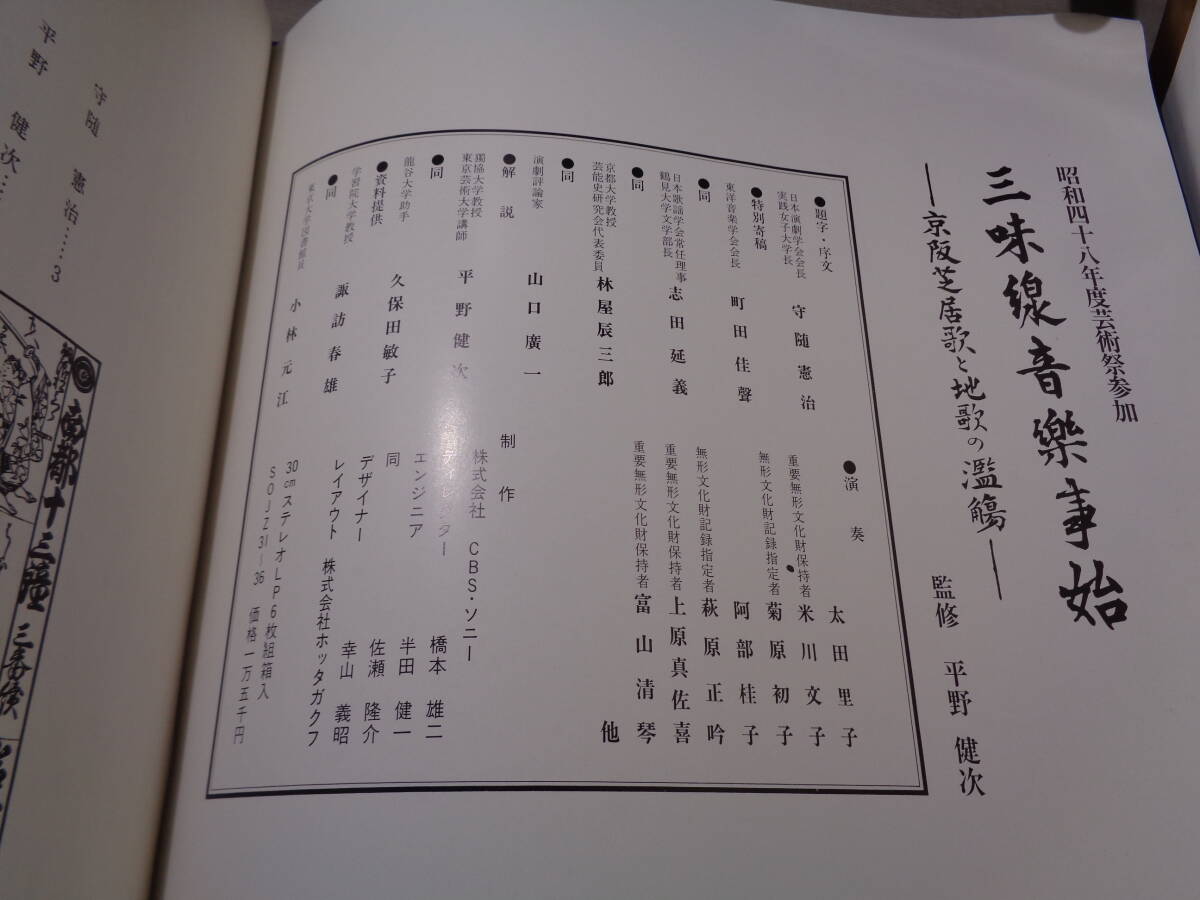 昭和四十八年度芸術祭参加
三味線音樂事始
―京阪芝居歌と地歌の濫觴―
監修 平野健次
●題字・序文
日本演劇学会会長
実践女子大学長
守随憲治
●特別寄稿
東洋音楽学会会長
町田佳聲
●同
日本歌謡学会常任理事
鶴見大学文学部長
志田延義
●同
京都大学教授
芸能史研究会代表委員
林屋辰三郎
●同
演劇評論家
山口廣一
●解説
獨協大学教授
東京芸術大学講師
平野健次
●同
龍谷大学助手
久保田敏子
●資料提供
学習院大学教授
諏訪春雄
●同
東京大学図書館員
小林元江
●演奏
太田里子
重要無形文化財保持者
米川文子
無形文化財記録指定者
菊原初子
阿部桂子
無形文化財記録指定者
萩原正吟
重要無形文化財保持者
上原真佐喜
重要無形文化財保持者
富山清琴
他
制作
株式会社 CBS・ソニー
ディレクター 橋本雄二
エンジニア 半田健一
同 佐瀬隆介
デザイナー 幸山義昭
レイアウト 株式会社ホッタガクフ
30cmステレオLP6枚組箱入
SOJZ31―36 価格一万五千円
守随憲治……3
平野健次……
南都十三鐘